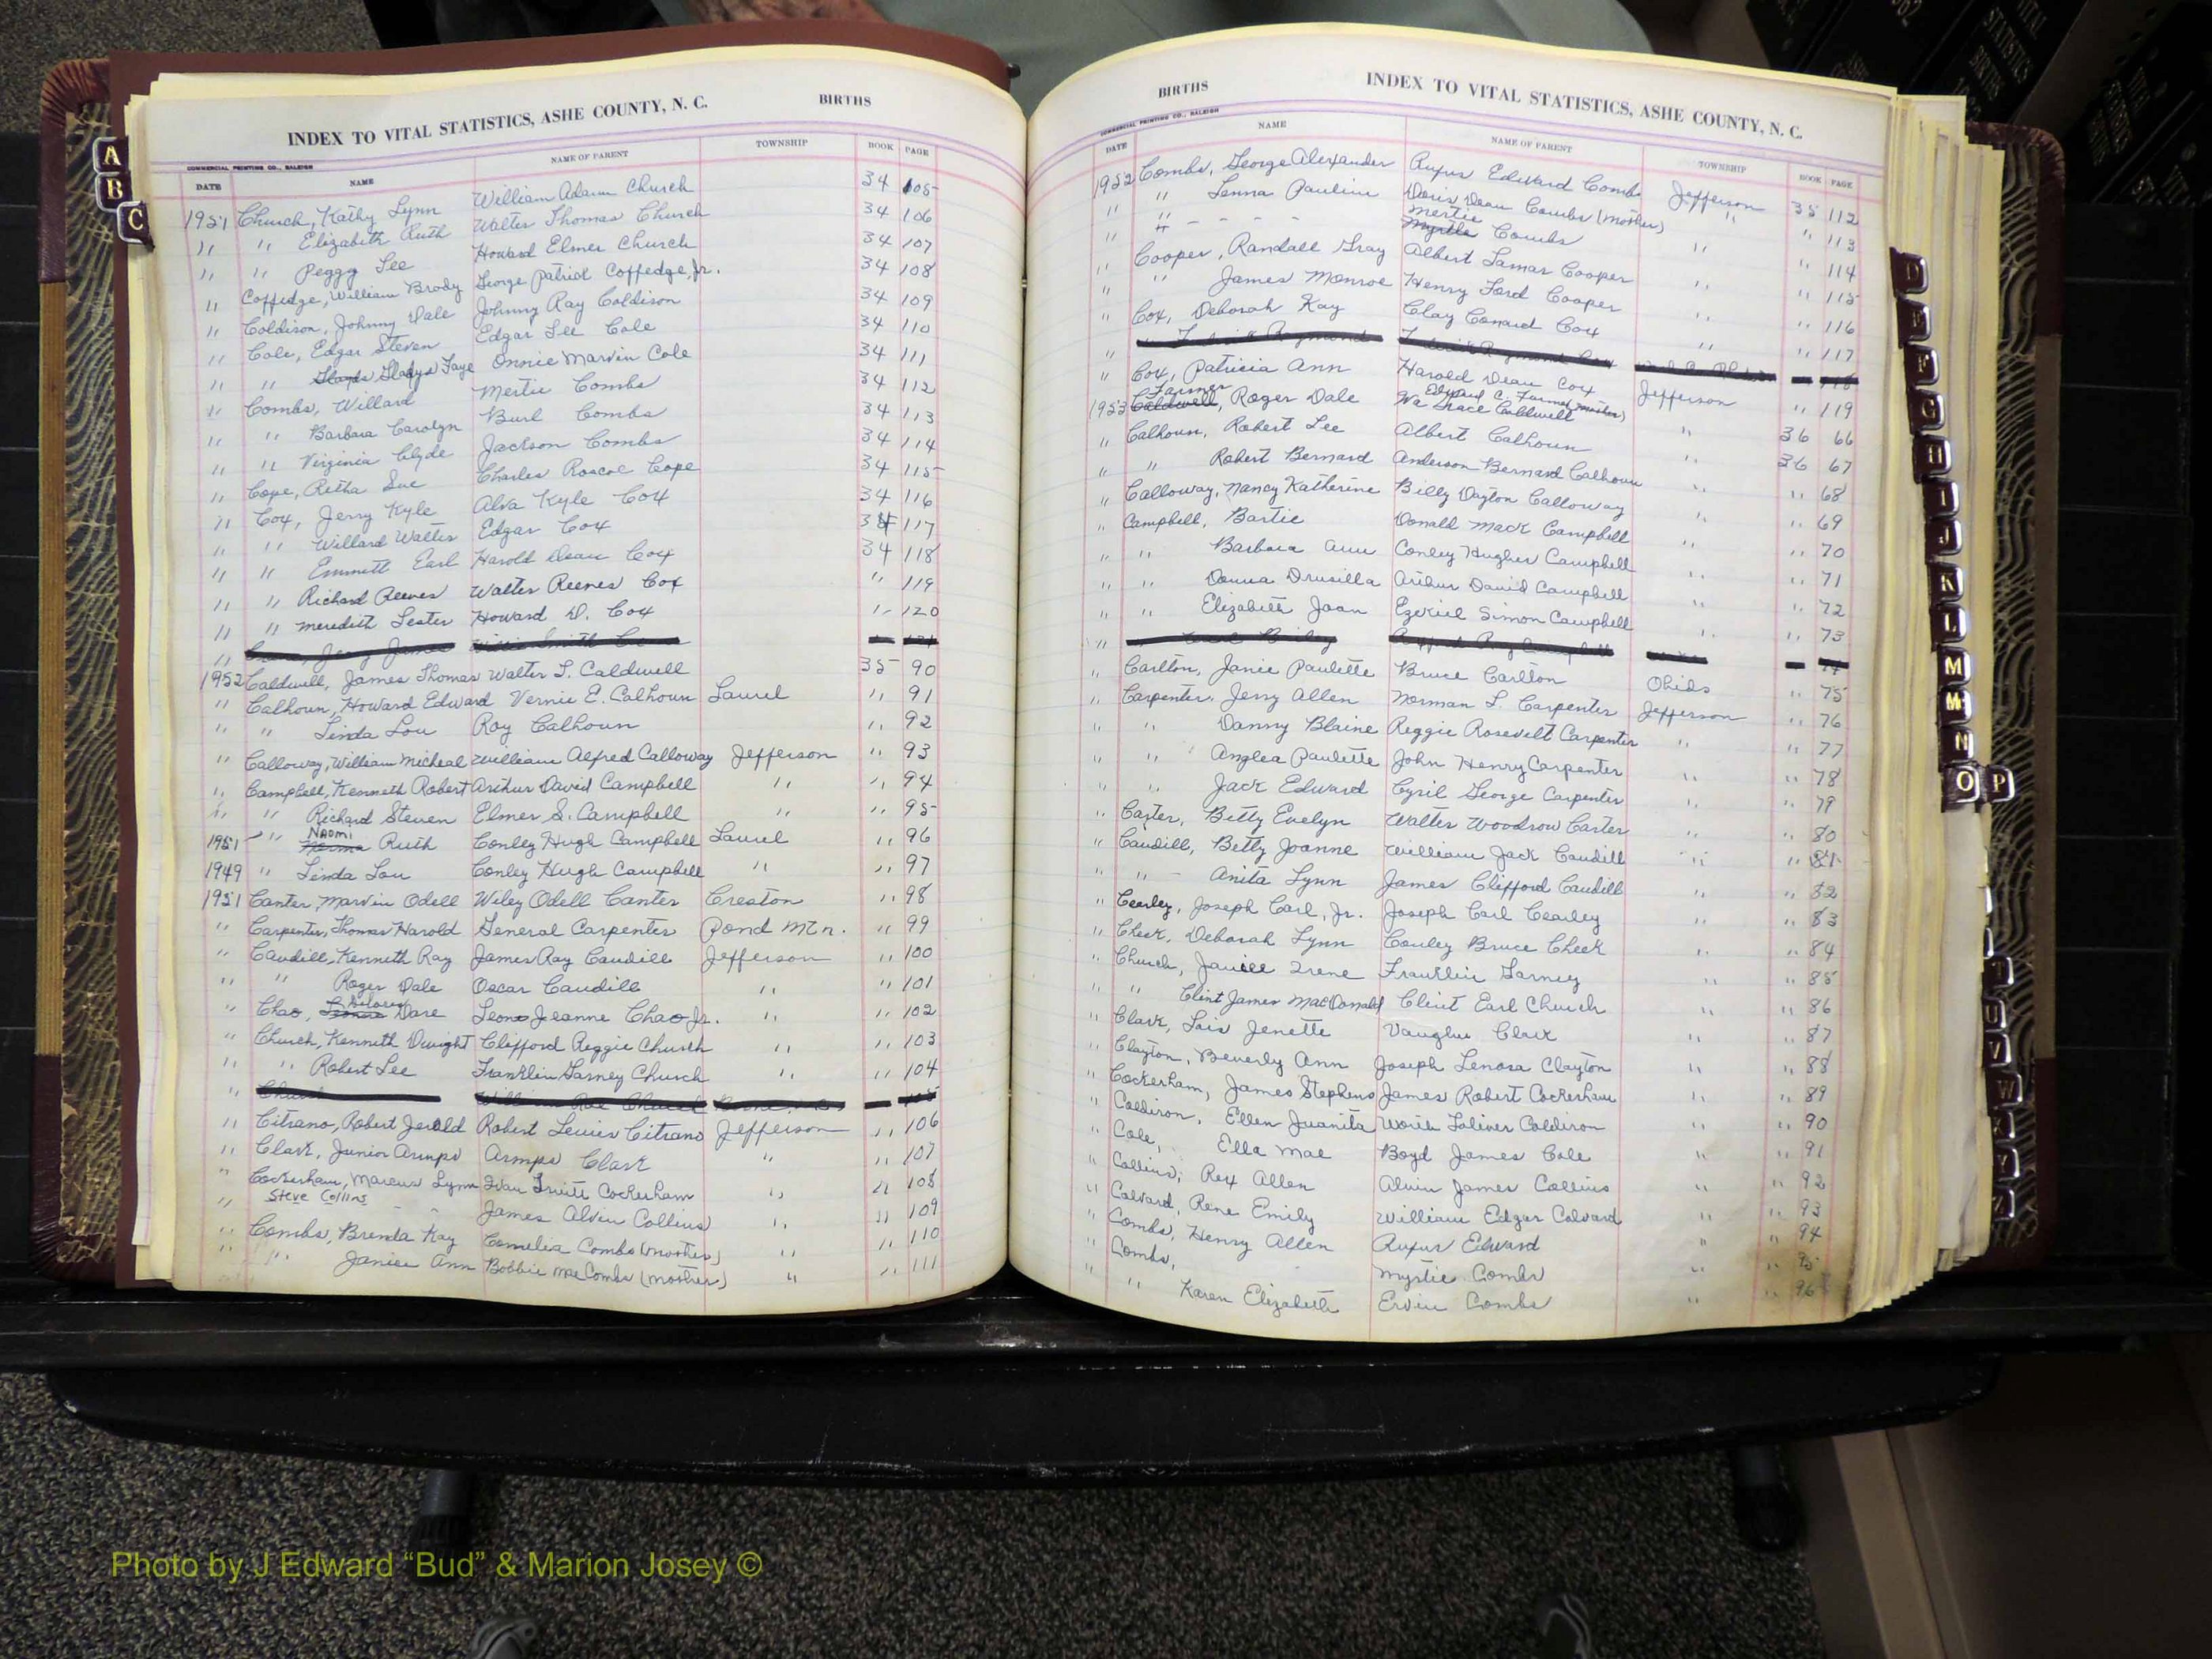 INDEX TO VITAL STATISTICS, ASHE COUNTY, N. C. BIRTHS
COMMERCIAL PRINTING CO., RALEIGH
DATE NAME NAME OF PARENT TOWNSHIP BOOK PAGE
1951 Church, Kathy Lynn William Adam Church 34 105
" " Elizabeth Ruth Walter Thomas Church 34 106
" " Peggy Lee Howard Elmer Church 34 107
" Coffedge, William Brody George Patrick Coffedge, Jr. 34 108
" Coldison, Johnny Dale Johnny Ray Coldison 34 109
" Cole, Edgar Steven Edgar Lee Cole 34 110
" " Gladys Faye Onnie Marvin Cole 34 111
" Combs, Willard Mertie Combs 34 112
" " Barbara Carolyn Burl Combs 34 113
" " Virginia Clyde Jackson Combs 34 114
" Cope, Retha Sue Charles Roscoe Cope 34 115
" Cox, Jerry Kyle Alva Kyle Cox 34 116
" " Willard Walter Edgar Cox 34 117
" " Emmett Earl Harold Dean Cox 34 118
" " Richard Reeves Walter Reeves Cox " 119
" " Meredith Lester Howard D. Cox " 120
"
1952 Caldwell, James Thomas Walter S. Caldwell 35 90
" Calhoun, Howard Edward Vernie E. Calhoun Laurel " 91
" " Linda Lou Roy Calhoun " 92
" Calloway, William Micheal William Alfred Calloway Jefferson " 93
" Campbell, Kenneth Robert Arthur David Campbell " " 94
" " Richard Steven Elmer S. Campbell " " 95
1951 " Naomi Norma Ruth Conley Hugh Campbell Laurel " 96
1949 " Linda Lou Conley Hugh Campbell " " 97
1951 Canter, Marvin Odell Wiley Odell Canter Creston " 98
" Carpenter, Thomas Harold General Carpenter Pond Mtn. " 99
" Caudill, Kenneth Ray James Ray Caudill Jefferson " 100
" " Roger Dale Oscar Caudill " " 101
" Chao, Dolores Dare Leone Jeanne Chao Jr. " " 102
" Church, Kenneth Dwight Clifford Reggie Church " " 103
" " Robert Lee Franklin Garney Church " " 104
"
" Citrano, Robert Jerald Robert Louis Citrano Jefferson " 106
" Clark, Junior Armps Armps Clark " " 107
" Cockerham, Marcus Lynn Ivan Truitt Cockerham " " 108
" Steve Collins James Alvin Collins " " 109
" Combs, Brenda Kay Cornelia Combs (mother) " " 110
" " Janice Ann Bobbie Mae Combs (mother) " " 111
BIRTHS INDEX TO VITAL STATISTICS, ASHE COUNTY, N. C.
COMMERCIAL PRINTING CO., RALEIGH
DATE NAME NAME OF PARENT TOWNSHIP BOOK PAGE
1952 Combs, George Alexander Rufus Edward Combs Jefferson 35 112
" " Lenna Pauline Doris Dean Combs (mother) " " 113
" " - - - - Mertie Myrtle Combs " " 114
" Cooper, Randall Gray Albert Lamar Cooper " " 115
" " James Monroe Henry Ford Cooper " " 116
" Cox, Deborah Kay Clay Conard Cox " " 117
"
" Cox, Patricia Ann Harold Dean Cox Jefferson " 119
1953 Farmer Caldwell, Roger Dale Edward C. Farmer Wa Grace Caldwell (mother) " 36 66
" Calhoun, Robert Lee Albert Calhoun " 36 67
" " Robert Bernard Anderson Bernard Calhoun " " 68
" Calloway, Nancy Katherine Billy Dayton Calloway " " 69
" Campbell, Bartie Donald Mack Campbell " " 70
" " Barbara Ann Conley Hughes Campbell " " 71
" " Donna Drusilla Arthur David Campbell " " 72
" " Elizabeth Joan Ezekiel Simon Campbell " " 73
"
" Carlton, Janie Paulette Bruce Carlton Obids " 75
" Carpenter, Jerry Allen Norman L. Carpenter Jefferson " 76
" " Danny Blaine Reggie Rosevelt Carpenter " " 77
" " Anglea Paulette John Henry Carpenter " " 78
" " Jack Edward Cyril George Carpenter " " 79
" Carter, Betty Evelyn Walter Woodrow Carter " " 80
" Caudill, Betty Joanne William Jack Caudill " " 81
" " Anita Lynn James Clifford Caudill " " 82
" Cearley, Joseph Carl, Jr. Joseph Carl Cearley " " 83
" Cheek, Deborah Lynn Conley Bruce Cheek " " 84
" Church, Janice Irene Franklin Garney " " 85
" " Clint James MacDonald Clint Earl Church " " 86
" Clark, Lois Jenette Vaughn Clark " " 87
" Clayton, Beverly Ann Joseph Lenosa Clayton " " 88
" Cockerham, James Stephens James Robert Cockerham " " 89
" Coldiron, Ellen Juanita Worth Toliver Coldiron " " 90
" Cole, Ella Mae Boyd James Cole " " 91
" Collins, Rex Allen Alvin James Collins " " 92
" Colvard, Rene Emily William Edgar Colvard " " 93
" Combs, Henry Allen Rufus Edward " " 94
" Combs, Myrtie Combs " " 95
" " Karen Elizabeth Ervin Combs " " 96
A
B
C
D
E
F
G
H
I
J
K
L
M
Mc
N
O P
T
U
V
W
VITAL STATISTICS BIRTHS
Photo by J Edward “Bud” & Marion Josey ©